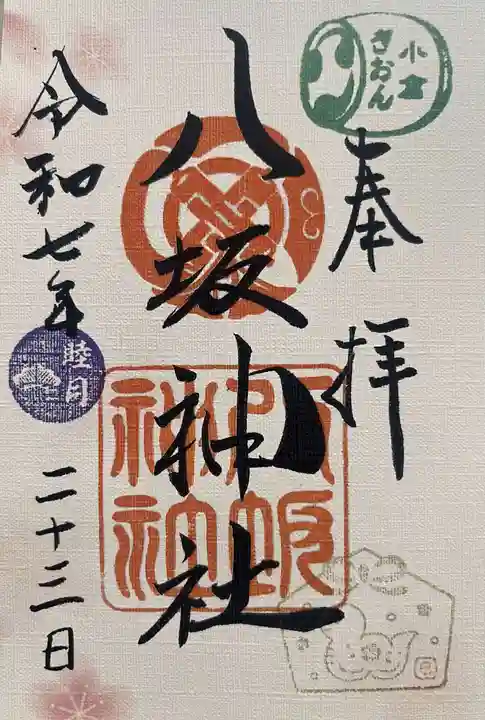 小倉
ぎおん
奉拝
八坂神社
八坂
神社
令和七年
睦月
二十三日